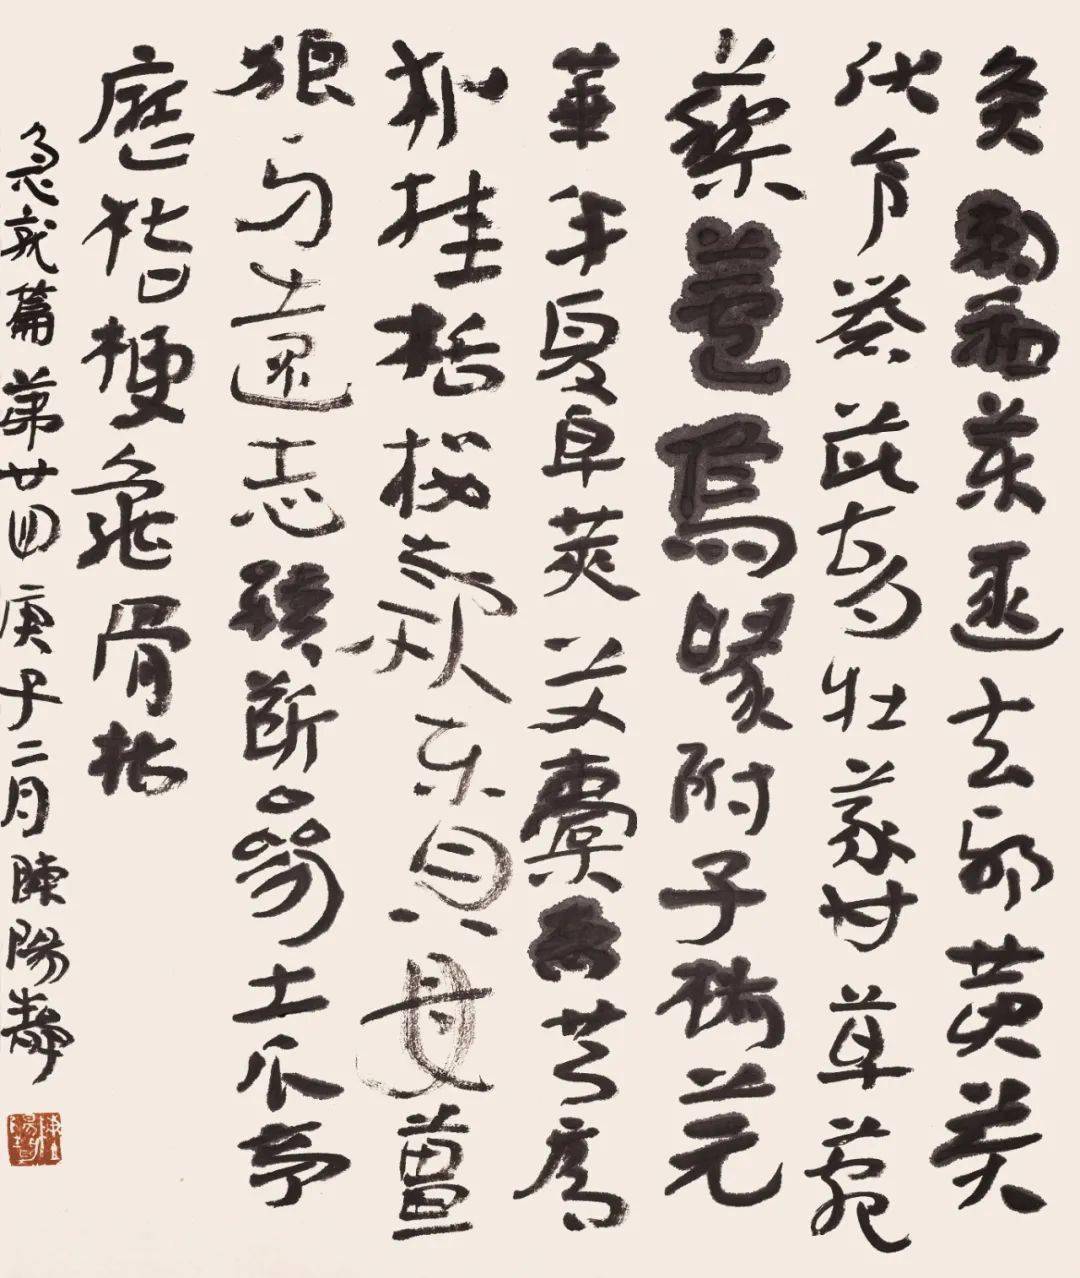 灸刺和藥逐去邪黃芩
伏令茈胡牡蒙甘草菀
藜蘆烏喙附子椒芫
華半夏皁莢艾橐吾芎厚
朴桂栝樓款東貝母薑
狼牙遠志續斷參土瓜亭
歷桔梗龜骨枯
急就篇第廿四庚子二月陳陽靜